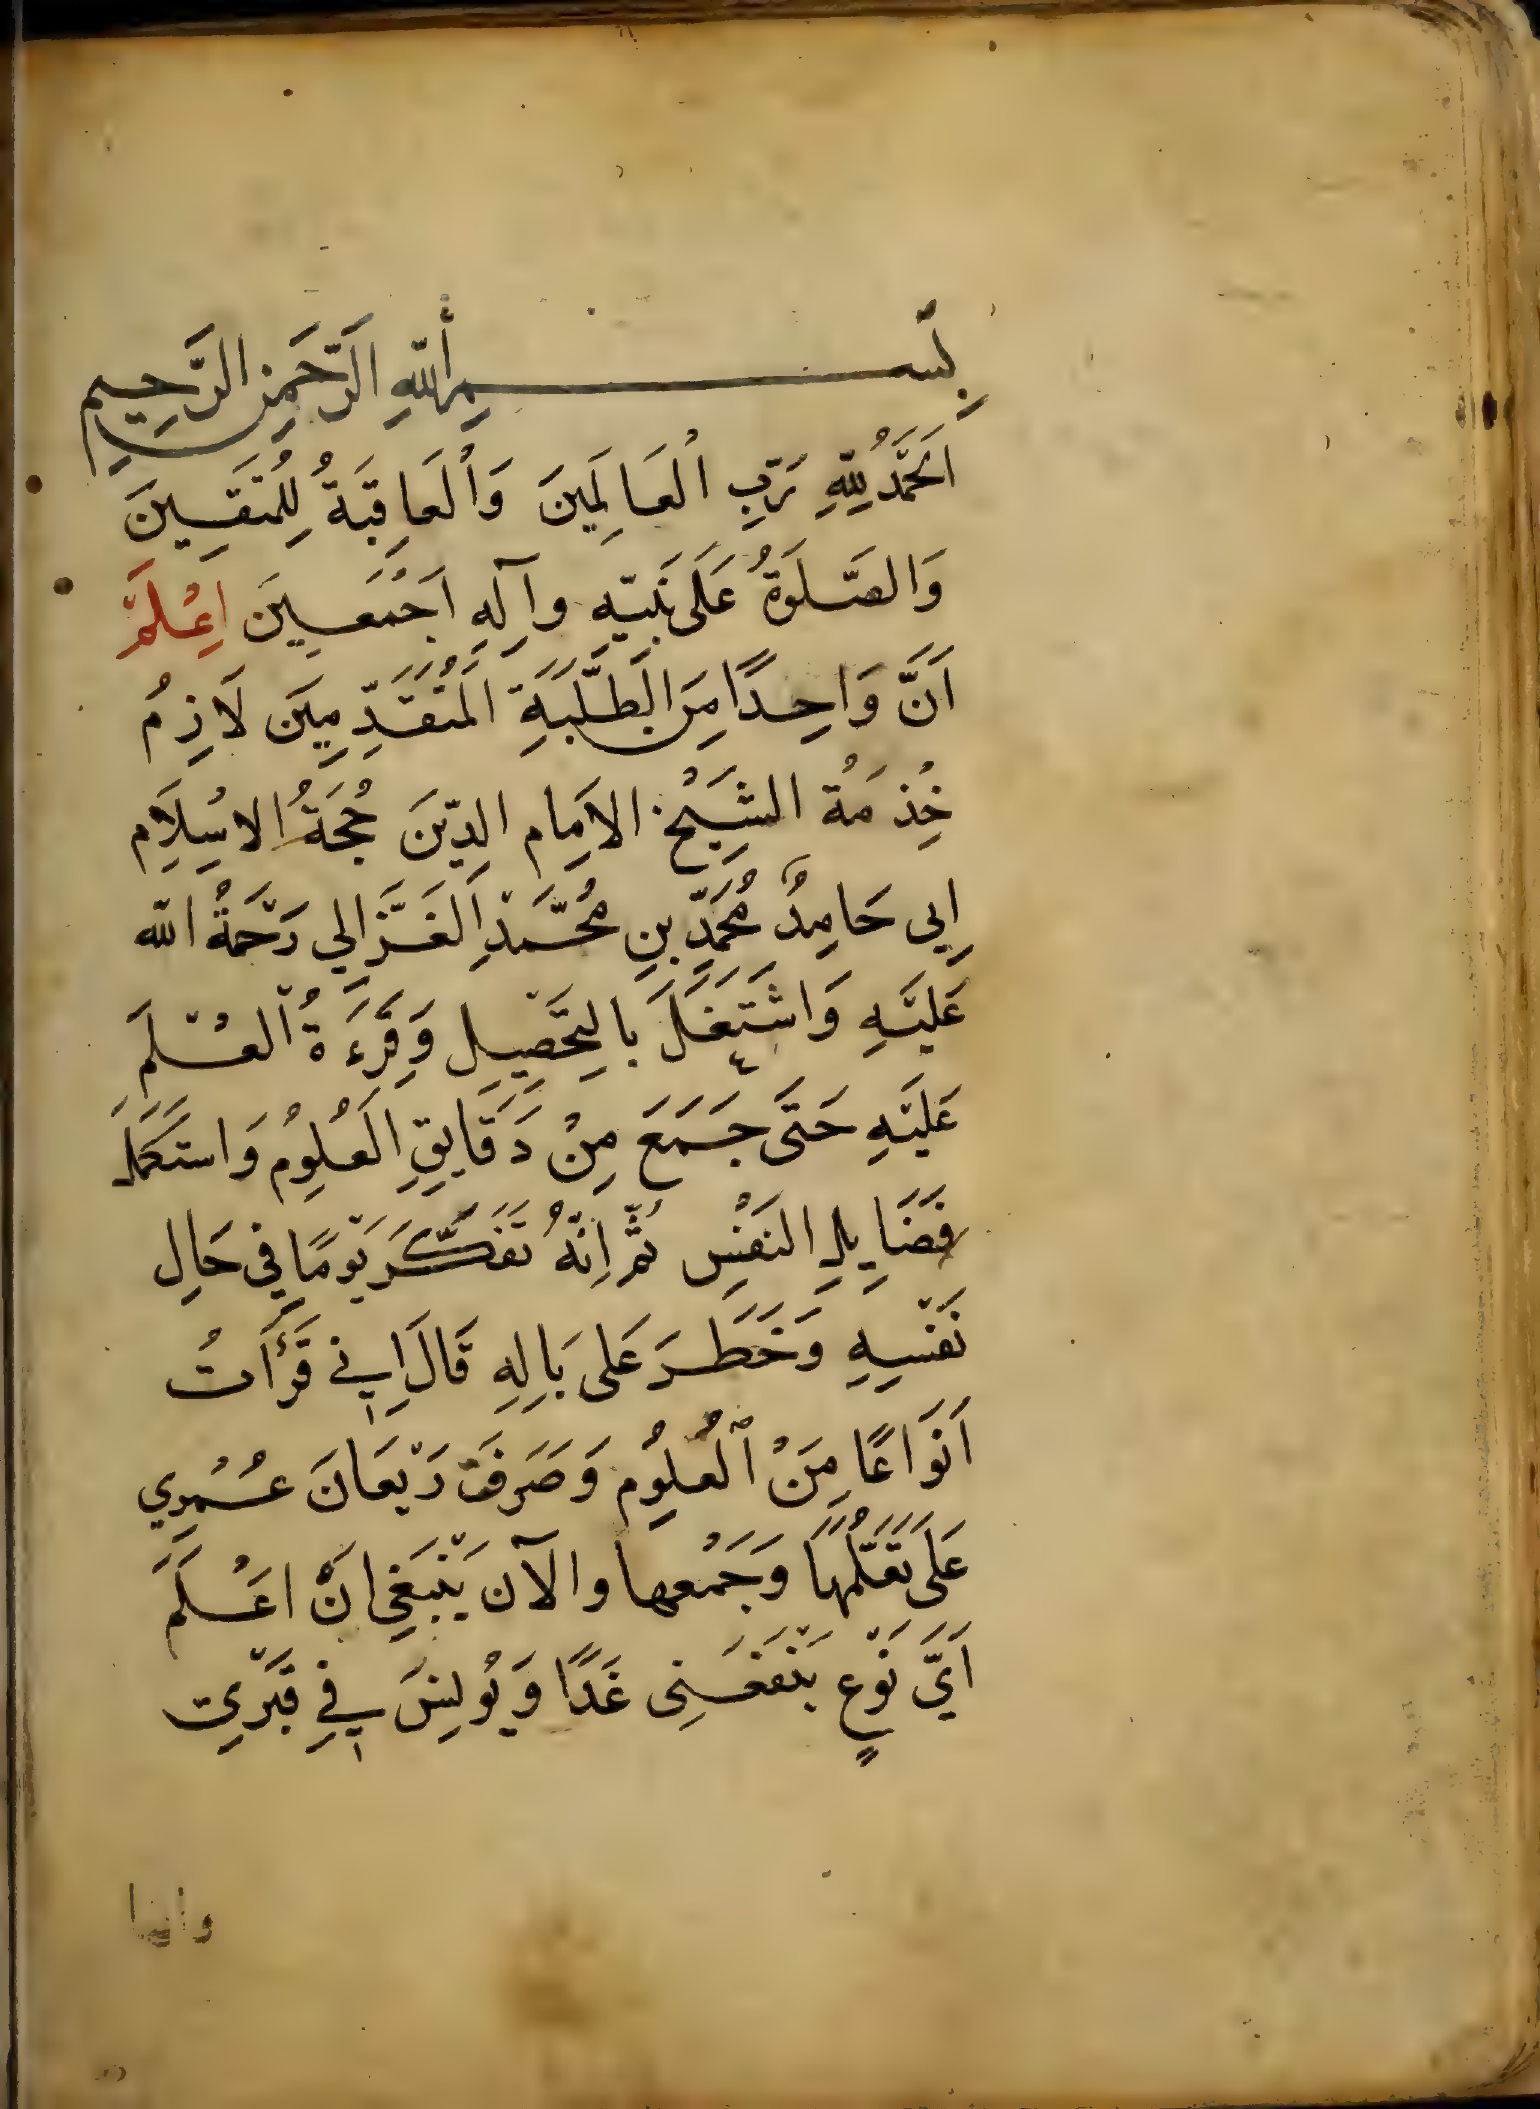 بِسْمِ اللّٰهِ الرَّحْمٰنِ الرَّحِيمِ
اَلْحَمْدُ لِلّٰهِ رَبِّ الْعَالَمِينَ وَالْعَاقِبَةُ لِلْمُتَّقِينَ
وَالصَّلَوةُ عَلَى نَبِيِّهِ وآلِهِ اَجْمَعِينَ اِعْلَمْ
اَنَّ وَاحِدًا مِنَ الطَّلَبَةِ الْمُتَقَدِّمِينَ لَازِمُ
خِدْمَةُ الشَّيْخ الاِمَام الدِّينَ حُجَةُ الاسْلَام
اِبي حَامِدُ مُحَمَّدِ بنِ مُحَمَّدِ الغَزَالي رَحْمَةُ الله
عَلَيْهِ وَاشْتَغَلَ بالتَّحْصِيلِ وَقِرَءَةُ الْعُلَمَ
عَلَيْهِ حَتَى جَمَعَ مِنْ دَقَايِقِ الْعُلُومُ وَاسْتَكْمَلَ
فَضَايِلِ النَفْسِ ثُمَّ اِنَّهُ تَفَكَّرَ يَوْمًا في حَالِ
نَفْسِهِ وَخَطَرَ عَلى بَالِهِ قَالَ اِني قَرَأْتُ
اَنْوَاعًا مِنَ الْعُلُوم وَصَرَفْتَ رَيْعَانَ عُمْرِي
عَلَى تَعَلُّمِهَا وَجَمْعِها والآن يَنْبَغِي اَنْ اَعْلَمَ
اَيَّ نَوْعٍ يَنْفَعُنِى غَدًا وَيُونِسَ فِي قَبْرِي
وايها